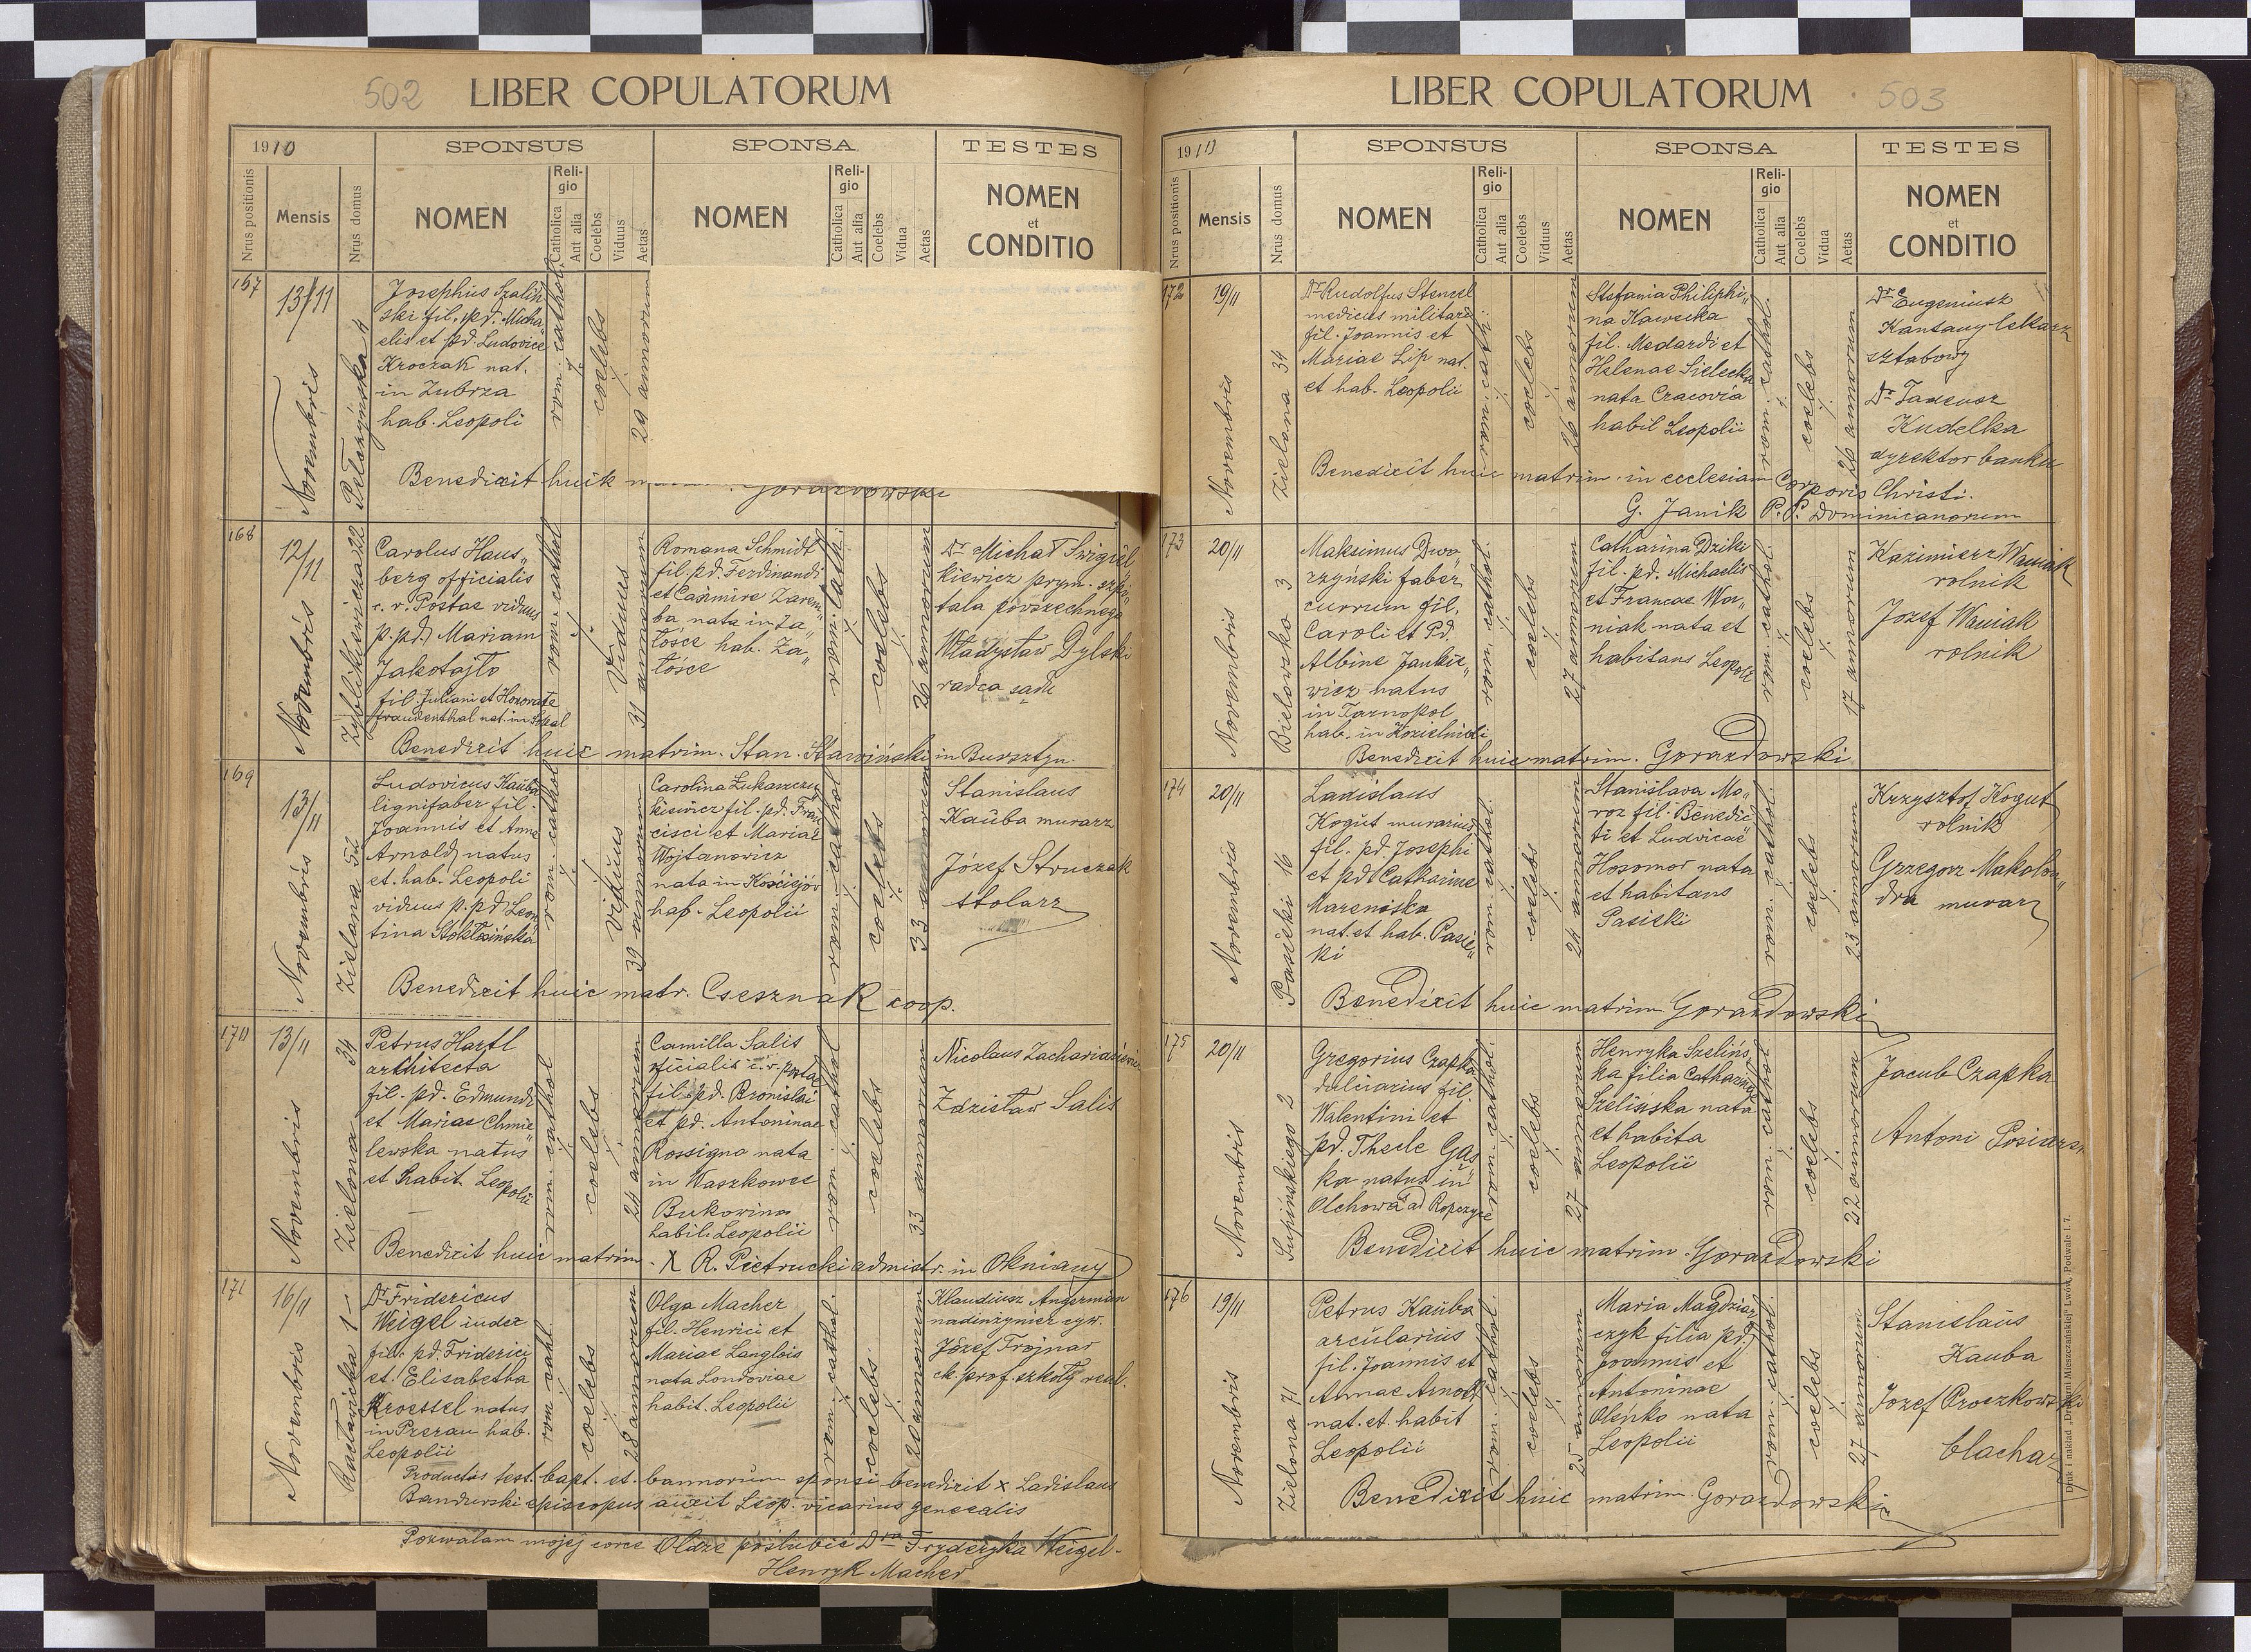 502 LIBER COPULATORUM
1910 SPONSUS SPONSA TESTES
Nrus positionis Mensis Nrus domus NOMEN Religio Catholica Aut alia Coelebs Viduus Aetas NOMEN Religio Catholica Aut alia Coelebs Vidua Aetas NOMEN et CONDITIO
167
13/11
Novembris
Pełczyńska
Josephus Szaliń
ski fil. pd. Micha
elis et pd. Ludovice
Kroczak nat.
in Zubrza
hab. Leopoli
rom. cathol.
coelebs
29 annorum
Benedixit huik
168
12/11
Novembris
Zyblikiewicza 22
Carolus Haus„
berg officialis
c. r. Postae viduus
p. pd. Mariam
Jakotajło
fil. Juliani et Honorate
rom. cathol
Viduus
31 annorum
Romana Schmidt
fil. pd. Ferdinandi
et Casimire Zarem„
ba nata in Za„
łośce hab. Za„
łośce
rom. cath.
coelebs
26 annorum
Dr Michał Świgiel
kiewicz prym. szpi
tala powszechnego
Władysław Dylski
radca sądu
Benedixit huic matrim. Stan. Sławiński in Bursztyn.
169
13/11
Novembris
Zielona 52
Ludovicus Kauba
lignifaber fil.
Joannis et Anne
Arnold natus
et. hab. Leopoli
viduus p. pd Leon
tina
rom. cathol
viduus
39 annorum
Carolina Łukaszcze
kiewicz fil. pd. Fran
cisci et Mariae
Wojtanowicz
nata in Kościejów
hab. Leopolii
rom. cathol
coelebs
33 annorum
Stanislaus
Kauba murarz
Józef Struczak
stolarz
Benedixit huic matr. Csesznak coop.
170
13/11
Novembris
Zielona 34
Petrus Hartl
architecta
fil. pd. Edmundi
et Mariae Chmie„
lewska natus
et habit. Leopolii
rom. cathol
coelebs
24 annorum
Camilla Salis
oficialis c. r. postae
fil. pd. Bronislai
et pd. Antoninae
Rossigno nata
in Waszkowce
Bukowina
habit. Leopolii
rom. cathol
coelebs
33 annorum
Nicolaus Zachariasiewicz
Zdzisław Salis
Benedixit huic matrim. X R. Pietrucki admistr. in Okniany
171
16/11
Novembris
Dr Fridericus
Weigel iudex
fil. pd. Friderici
et. Elisabetha
Kroessel natus
in Prerau hab.
Leopolii
rom cath.
coelebs
28 annorum
Olga Macher
fil. Henrici et
Mariae Langlois
nata Londoviae
habit. Leopolii
rom. cathol.
coelebs.
20 annorum
Klaudiusz Angerman
nadinżynier cyw.
Józef Trojnar
ck. prof. szkoły real.
Productis test. bapt. et. bannorum sponsi benedixit x Ladislaus
Bandurski episcopus auxit Leop. vicarius generalis
Pozwalam mojej córce Oldze poślubić Dra Fryderyka Weigel-
Henryk Macher
LIBER COPULATORUM 503
1910 SPONSUS SPONSA TESTES
Nrus positionis Mensis Nrus domus NOMEN Religio Catholica Aut alia Coelebs Viduus Aetas NOMEN Religio Catholica Aut alia Coelebs Vidua Aetas NOMEN et CONDITIO
172
19/11
Novembris
Zielona 34
Dr Rudolfus Stenzel
medicus militaris
fil. Joannis et
Mariae Lip nat.
et hab. Leopolii
rom. cath.
coelebs
26 annorum
Stefania Philippi„
na Kawecka
fil. Medardi et
Helenae Sielecka
nata Cracovia
habit Leopolii
rom. cathol.
coelebs
26 annorum
Dr Eugeniusz
Kantany lekarz
sztabowy
Dr Tadeusz
Kudelka
dyrektor banku
Benedixit huic matrim. in ecclesiam Corporis Christi.
G. Janik P. P. Dominicanorum
173
20/11
Novembris
Bielowsko 3
Maksimus Dwo„
rzyński faber
cuorrum fil.
Caroli et Pd.
Albine Jankie„
wicz natus
in Tarnopol
hab. in Kozielniki
rom. cathol.
coelebs
27 annorum
Catharina Dziki
fil. pd. Michaelis
et Francae Wa„
niak nata et
habitans Leopoli
rom. cathol.
coelebs
17 annorum
Kazimierz Waniak
rolnik
Jozef Waniak
rolnik
Benedixit huic matrim. Gorazdowski
174
20/11
Novembris
Pasieki 16
Ladislaus
Kogut murarius
fil. pd. Josephi
et pd. Catharine
Mareniska
nat. et hab. Pasie„
ki
rom. cathol.
coelebs
24 annorum
Stanislava Mo„
roz fil. Benedic
ti et Ludvicae
Hosomor nata
et habitans
Pasieki
rom. cathol.
coelebs
23 annorum
Krzysztof Kogut
rolnik
Grzegorz Makolon„
dra murarz
Benedixit huic matrim. Gorazdowski
175
20/11
Novembris
Supińskiego 2
Gregorius Czapka
dulciarius fil.
Walentini et
pd. Thecle Gąs
ka natus in
Olchowa ad Ropczyce
rom. cathol.
coelebs
27 annorum
Henryka Szelińs
ka filia Catharinae
Szelińska nata
et habita
Leopolii
rom. cathol
coelebs
22 annorum
Jacub Czapka
Antoni
Benedixit huic matrim. Gorazdowski
176
19/11
Novembris
Zielona 71
Petrus Kauba
arcularius
fil. Joannis et
Annae Arnold
nat. et. habit
Leopolii
rom. cathol.
coelebs
25 annorum
Maria Magdziar
czyk filia pd.
Joannis et
Antoninae
Oleńko nata
Leopolii
rom. cathol.
coelebs
27 annorum
Stanislaus
Kauba
Jozef Proczkowski
blacharz
Benedixit huic matrim. Gorazdowski
Druk i nakład „Drukarni Mieszczańskiej" Lwów, Podwale l. 7.